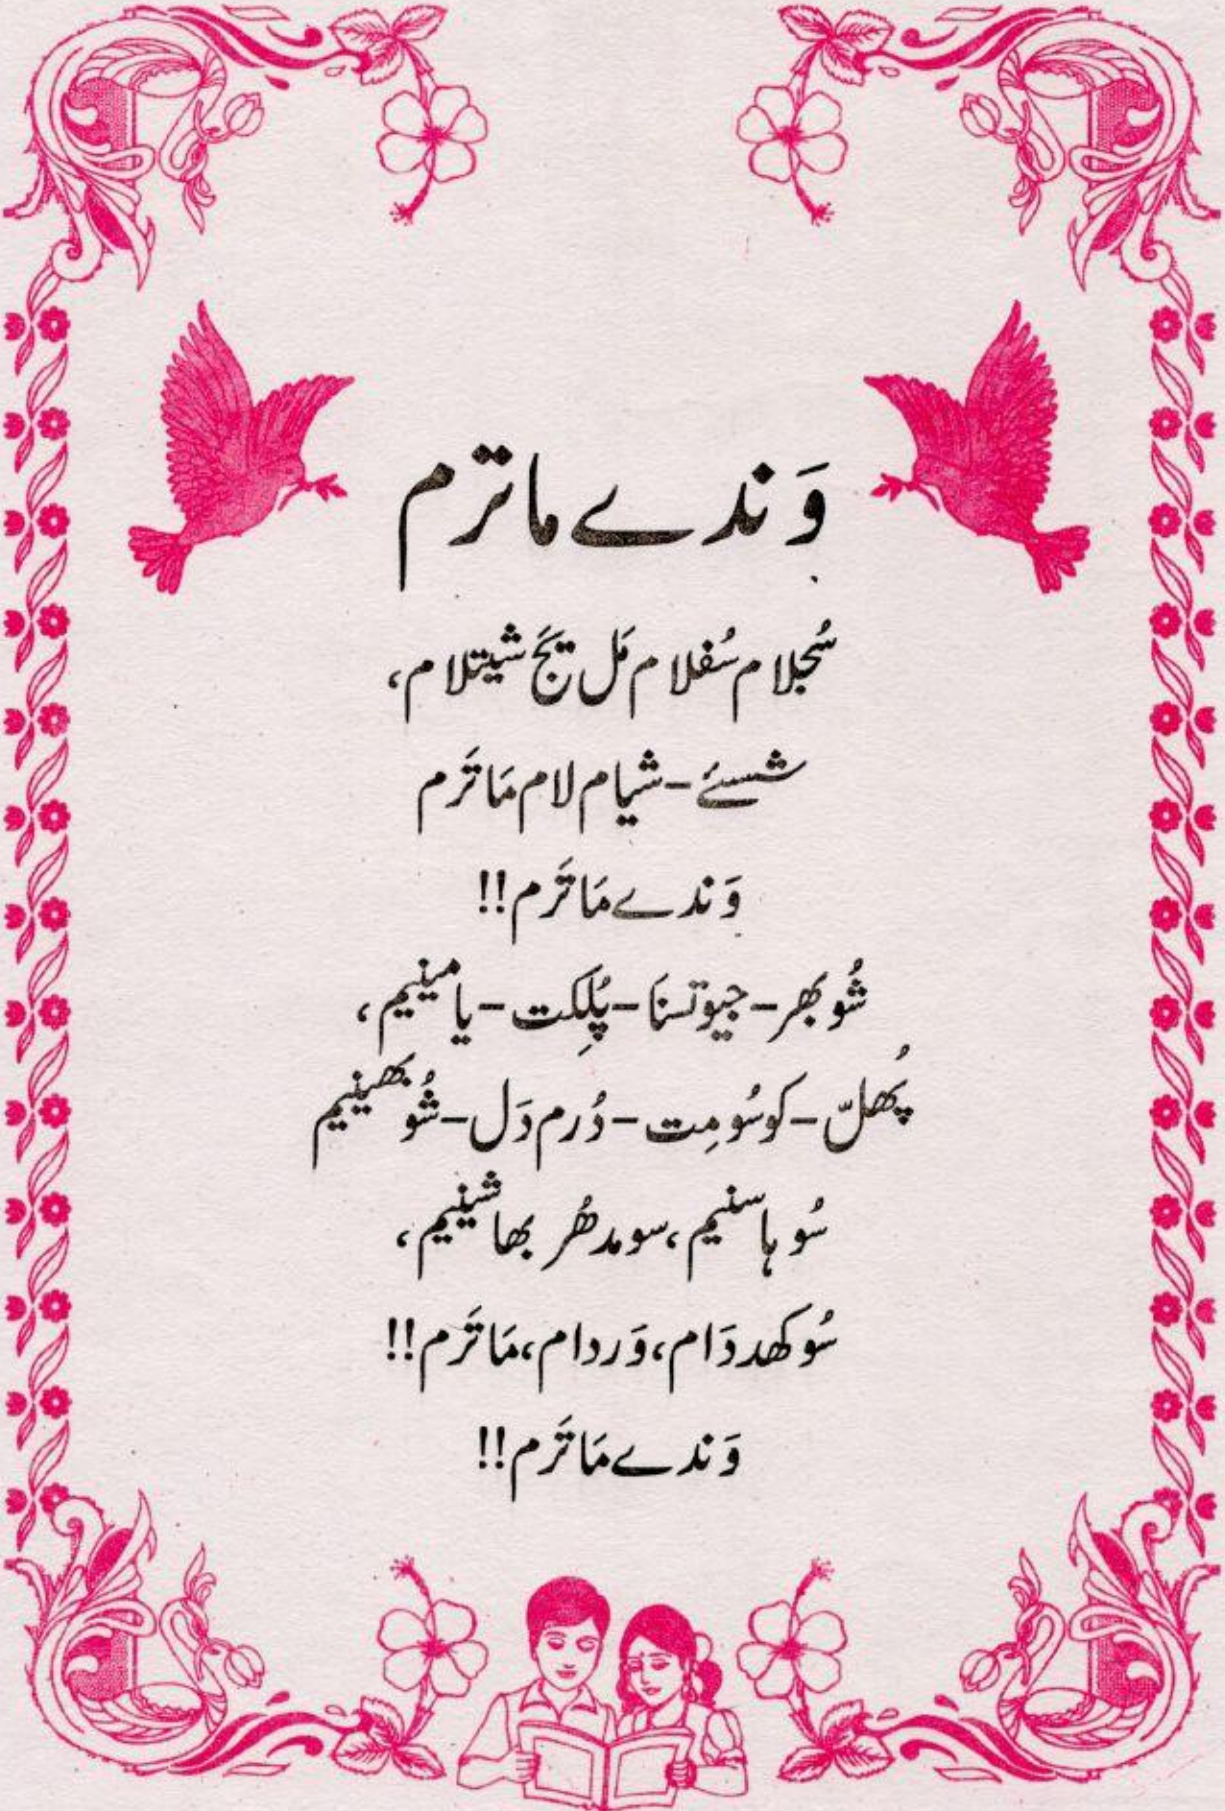 وَندے ماترم
سُجلام سُفلام مَل یَج شیتلام،
شسئے-شیام لام مَاتَرم
وَندے مَاتَرم!!
شُوبھر-جیوتسنَا-پُلکِت-یا مینیم،
پُھلّ-کوسُومِت-دُرم دَل-شُوبھینیم
سُوہاسنیم، سومدھُر بھاشینیم،
سُوکھدوَام، وَردام، مَاتَرم!!
وَندے مَاتَرم!!